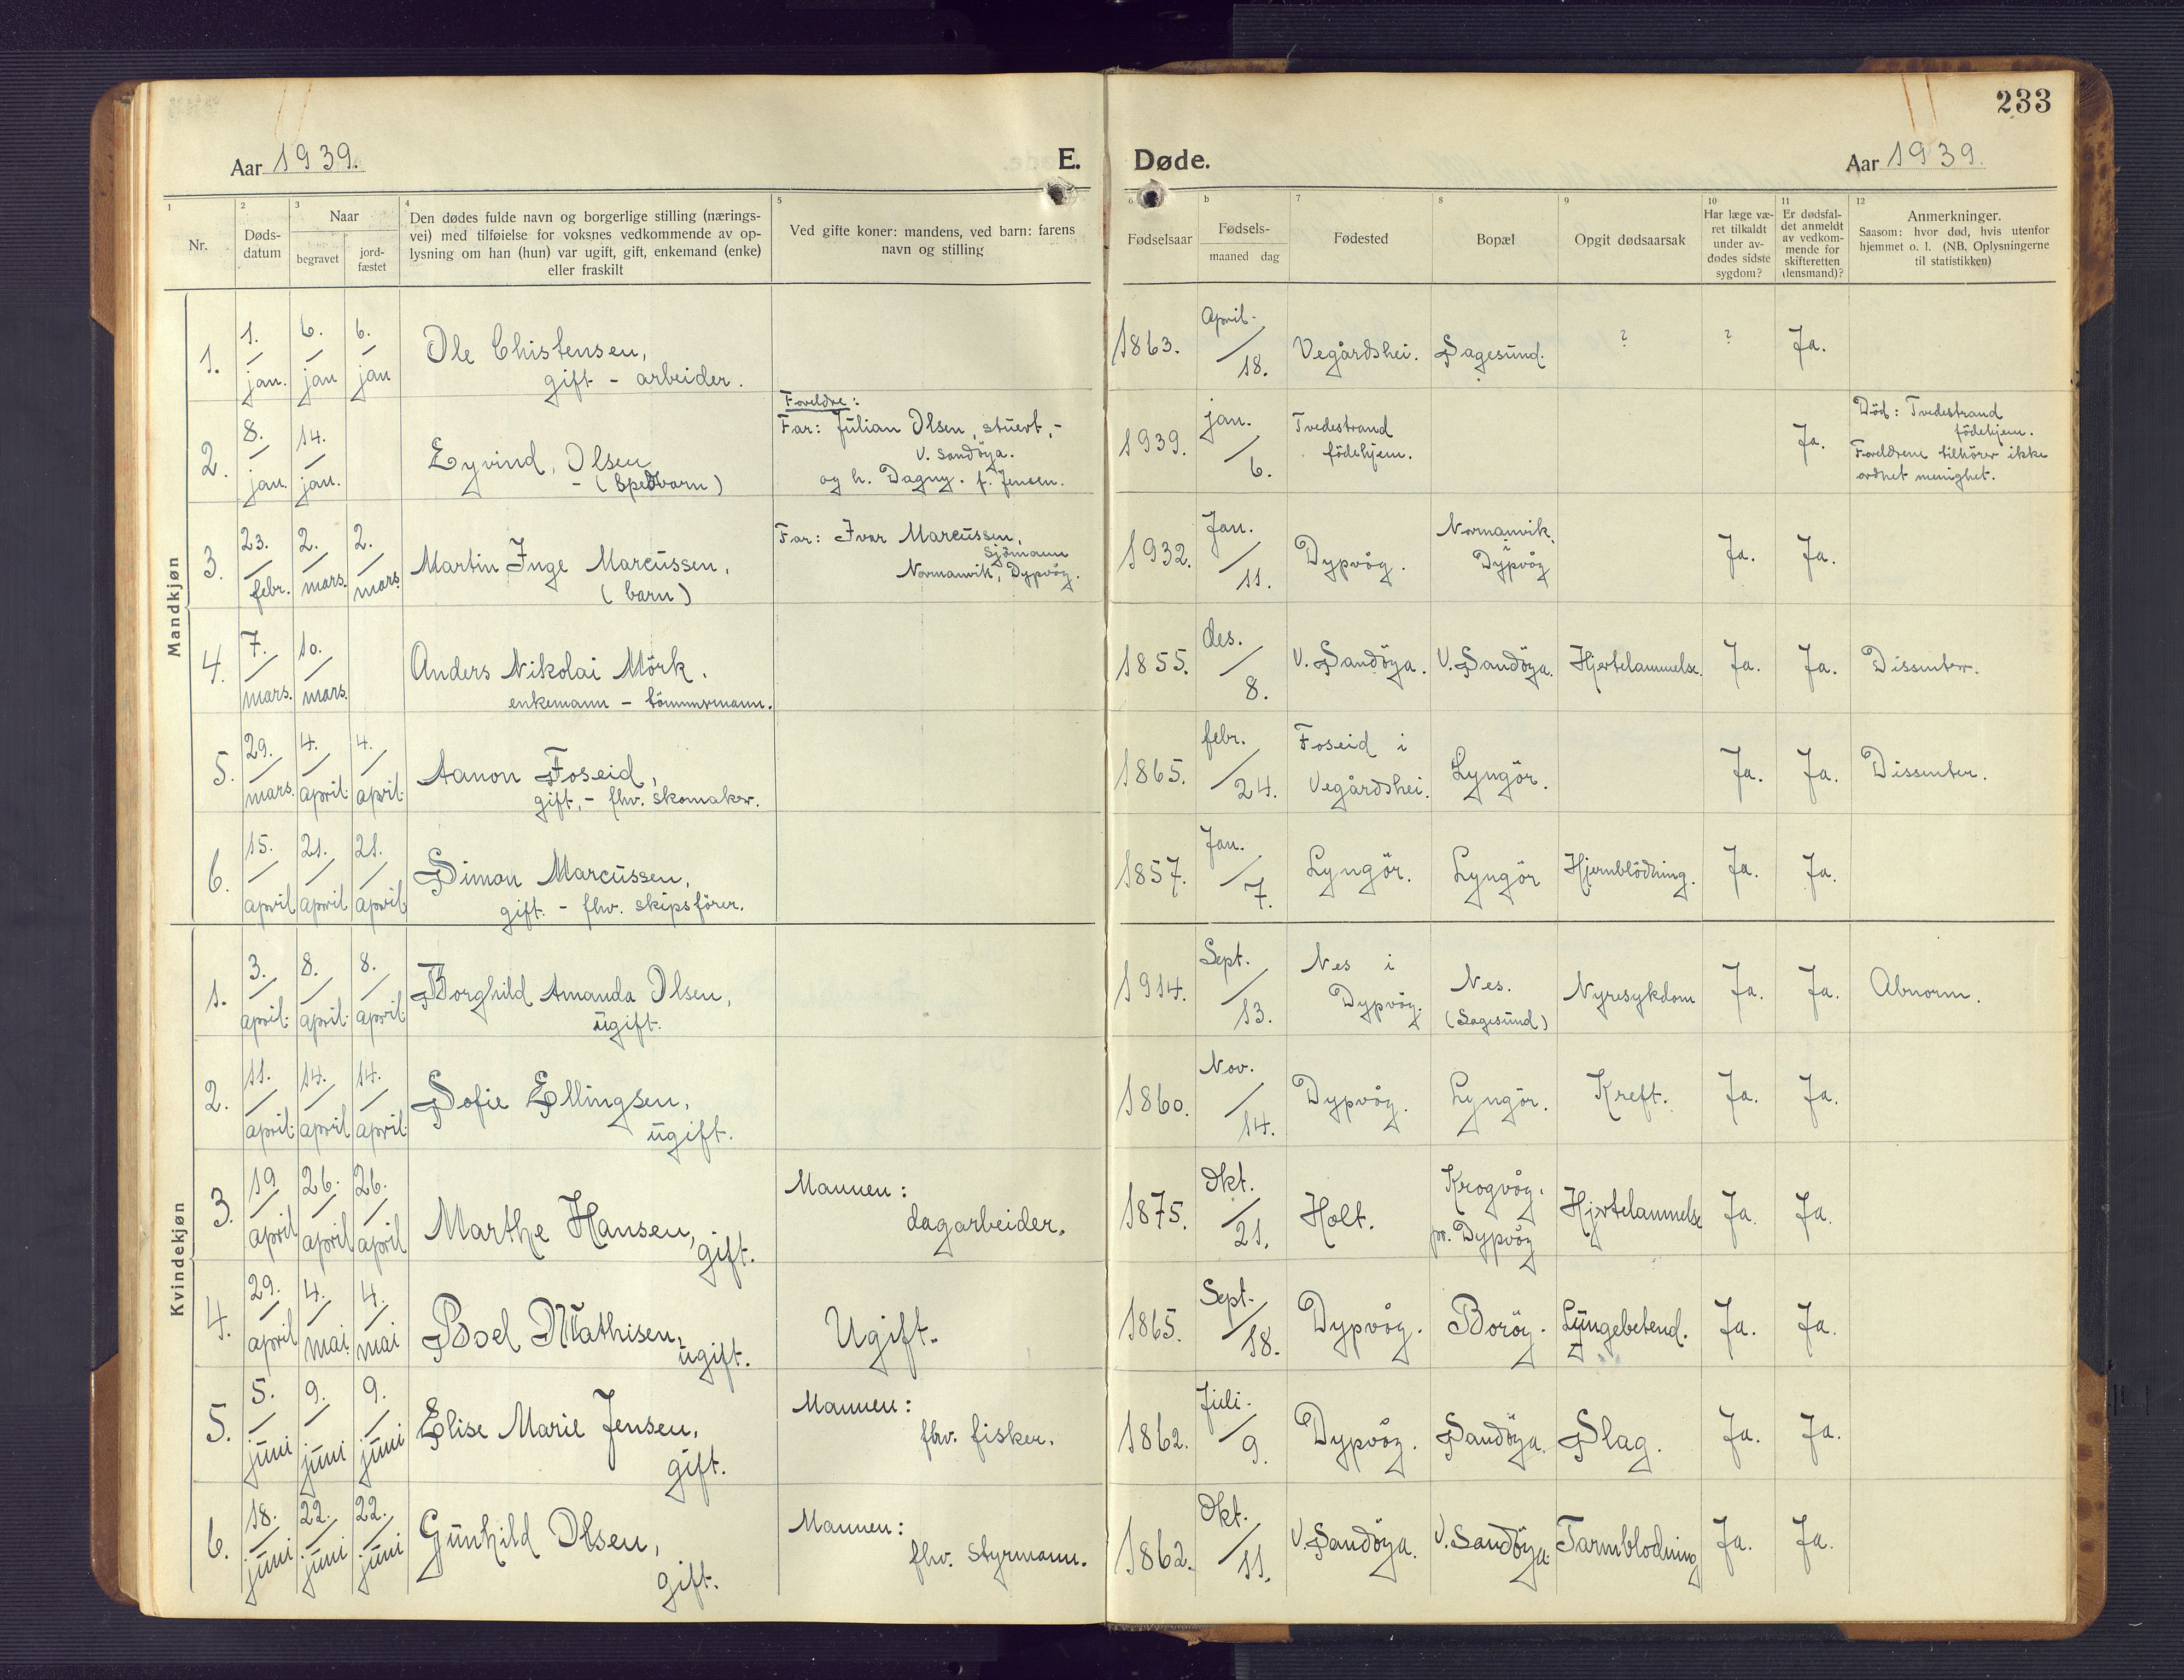 233
Aar 1939. E. Døde. Aar 1939.
1 Nr.
2 Dødsdatum
3 Naar
begravet
jordfæstet
4 Den dødes fulde navn og borgerlige stilling (nærings-
vei) med tilføielse for voksnes vedkommende av op-
lysning om han (hun) var ugift, gift, enkemand (enke)
eller fraskilt
5 Ved gifte koner: mandens, ved barn: farens
navn og stilling
Fødselsaar
b Fødsels-
maaned dag
7 Fødested
8 Bopæl
9 Opgit dødsaarsak
10 Har læge væ-
ret tilkaldt
under av-
dødes sidste
sygdom?
11 Er dødsfal-
det anmeldt
av vedkom-
mende for
skifteretten
(lensmand)?
12 Anmerkninger.
Saasom: hvor død, hvis utenfor
hjemmet o. l. (NB. Oplysningerne
til statistikken)
Mandkjøn
1. 1. / jan. 6. / jan 6. / jan
Ole Chistensen,
gift - arbeider.
1863. April. / 18. Vegårdshei. Sagesund. ? ? Ja.
2. 8. / jan. 14. / jan.
Eyvind, Olsen
- (spedbarn)
Foreldre:
Far: Julian Olsen, stuert, -
V. Sandöya.
og h. Dagny. f. Jensen.
1939. jan. / 6. Tvedestrand
födehjem.
Ja.
Död: Tvedestrand
födehjem.
Foreldrene tilhörer ikke
ordnet menighet.
3. 23. / febr. 2. / mars. 2. / mars.
Martin Inge Marcussen,
(barn)
Far: Ivar Marcussen,
Sjömann
Normanvik, Dypvåg.
1932. Jan. / 11. Dypvåg. Normanvik,
i
Dypvåg
Ja. Ja.
4. 7. / mars. 10. / mars.
Anders Nikolai Mörk.
enkemann - tömmermann.
1855. des. / 8. V. Sandöya. V. Sandöya. Hjertelammelse. Ja. Ja. Dissenter.
5. 29. / mars. 4. / april. 4. / april.
Aanon Foseid,
gift, - fhv. skomaker.
1865. febr. / 24. Foseid i
Vegårdshei.
Lyngör. Ja. Ja. Dissenter.
6. 15. / april 21. / april 21. / april
Simon Marcussen,
gift. - fhv. skipsförer.
1857. Jan. / 7. Lyngör. Lyngör Hjernblödning. Ja. Ja.
Kvindekjøn
1. 3. / april. 8. / april. 8. / april.
Borghild Amanda Olsen,
ugift.
1914. Sept. / 13. Nes i
Dypvåg.
Nes.
(Sagesund)
Nyresykdom Ja. Ja. Abnorm.
2. 11. / april. 14. / april 14. / april.
Sofie Ellingsen,
ugift.
1860. Nov. / 14. Dypvåg. Lyngör. Kreft. Ja. Ja.
3. 19 / april 26. / april 26. / april
Marthe Hansen,
gift.
Mannen:
dagarbeider.
1875. Okt. / 21. Holt. Krogvåg.
pr. Dypvåg
Hjertelammelse Ja. Ja.
4. 29. / april 4. / mai. 4. / mai
Boel Mathisen,
ugift.
Ugift.
1865. Sept. / 18. Dypvåg. Boröy. Lungebetend. Ja. Ja.
5. 5. / juni 9. / juni 9. / juni
Elise Marie Jensen,
gift.
Mannen:
fhv. fisker.
1862. Juli. / 9. Dypvåg. Sandöya. Slag. Ja. Ja.
6. 18. / juni 22. / juni 22. / juni
Gunhild Olsen,
gift.
Mannen:
fhv. Styrmann.
1862. Okt. / 11. V. Sandöya. V. Sandöya. Tarmblodning Ja. Ja.